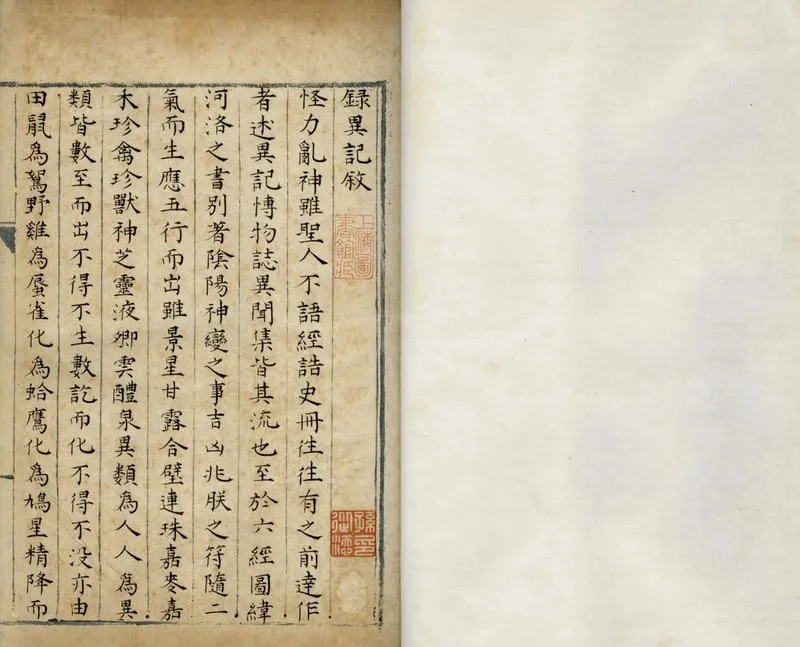 録異記敘
怪力亂神雖聖人不語經誥史冊往往有之前達作
者述異記博物誌異聞集皆其流也至於六經圖緯
河洛之書別著陰陽神變之事吉凶兆朕之符隨二
氣而生應五行而出雖景星甘露合璧連珠嘉麥嘉
禾珍禽珍獸神芝靈液卿雲醴泉異類為人人為異
類皆數至而出不得不生數訖而化不得不没亦由
田鼠為鴽野雞為蜃雀化為蛤鷹化為鳩星精降而
上海圖
書館藏
孫印
從添